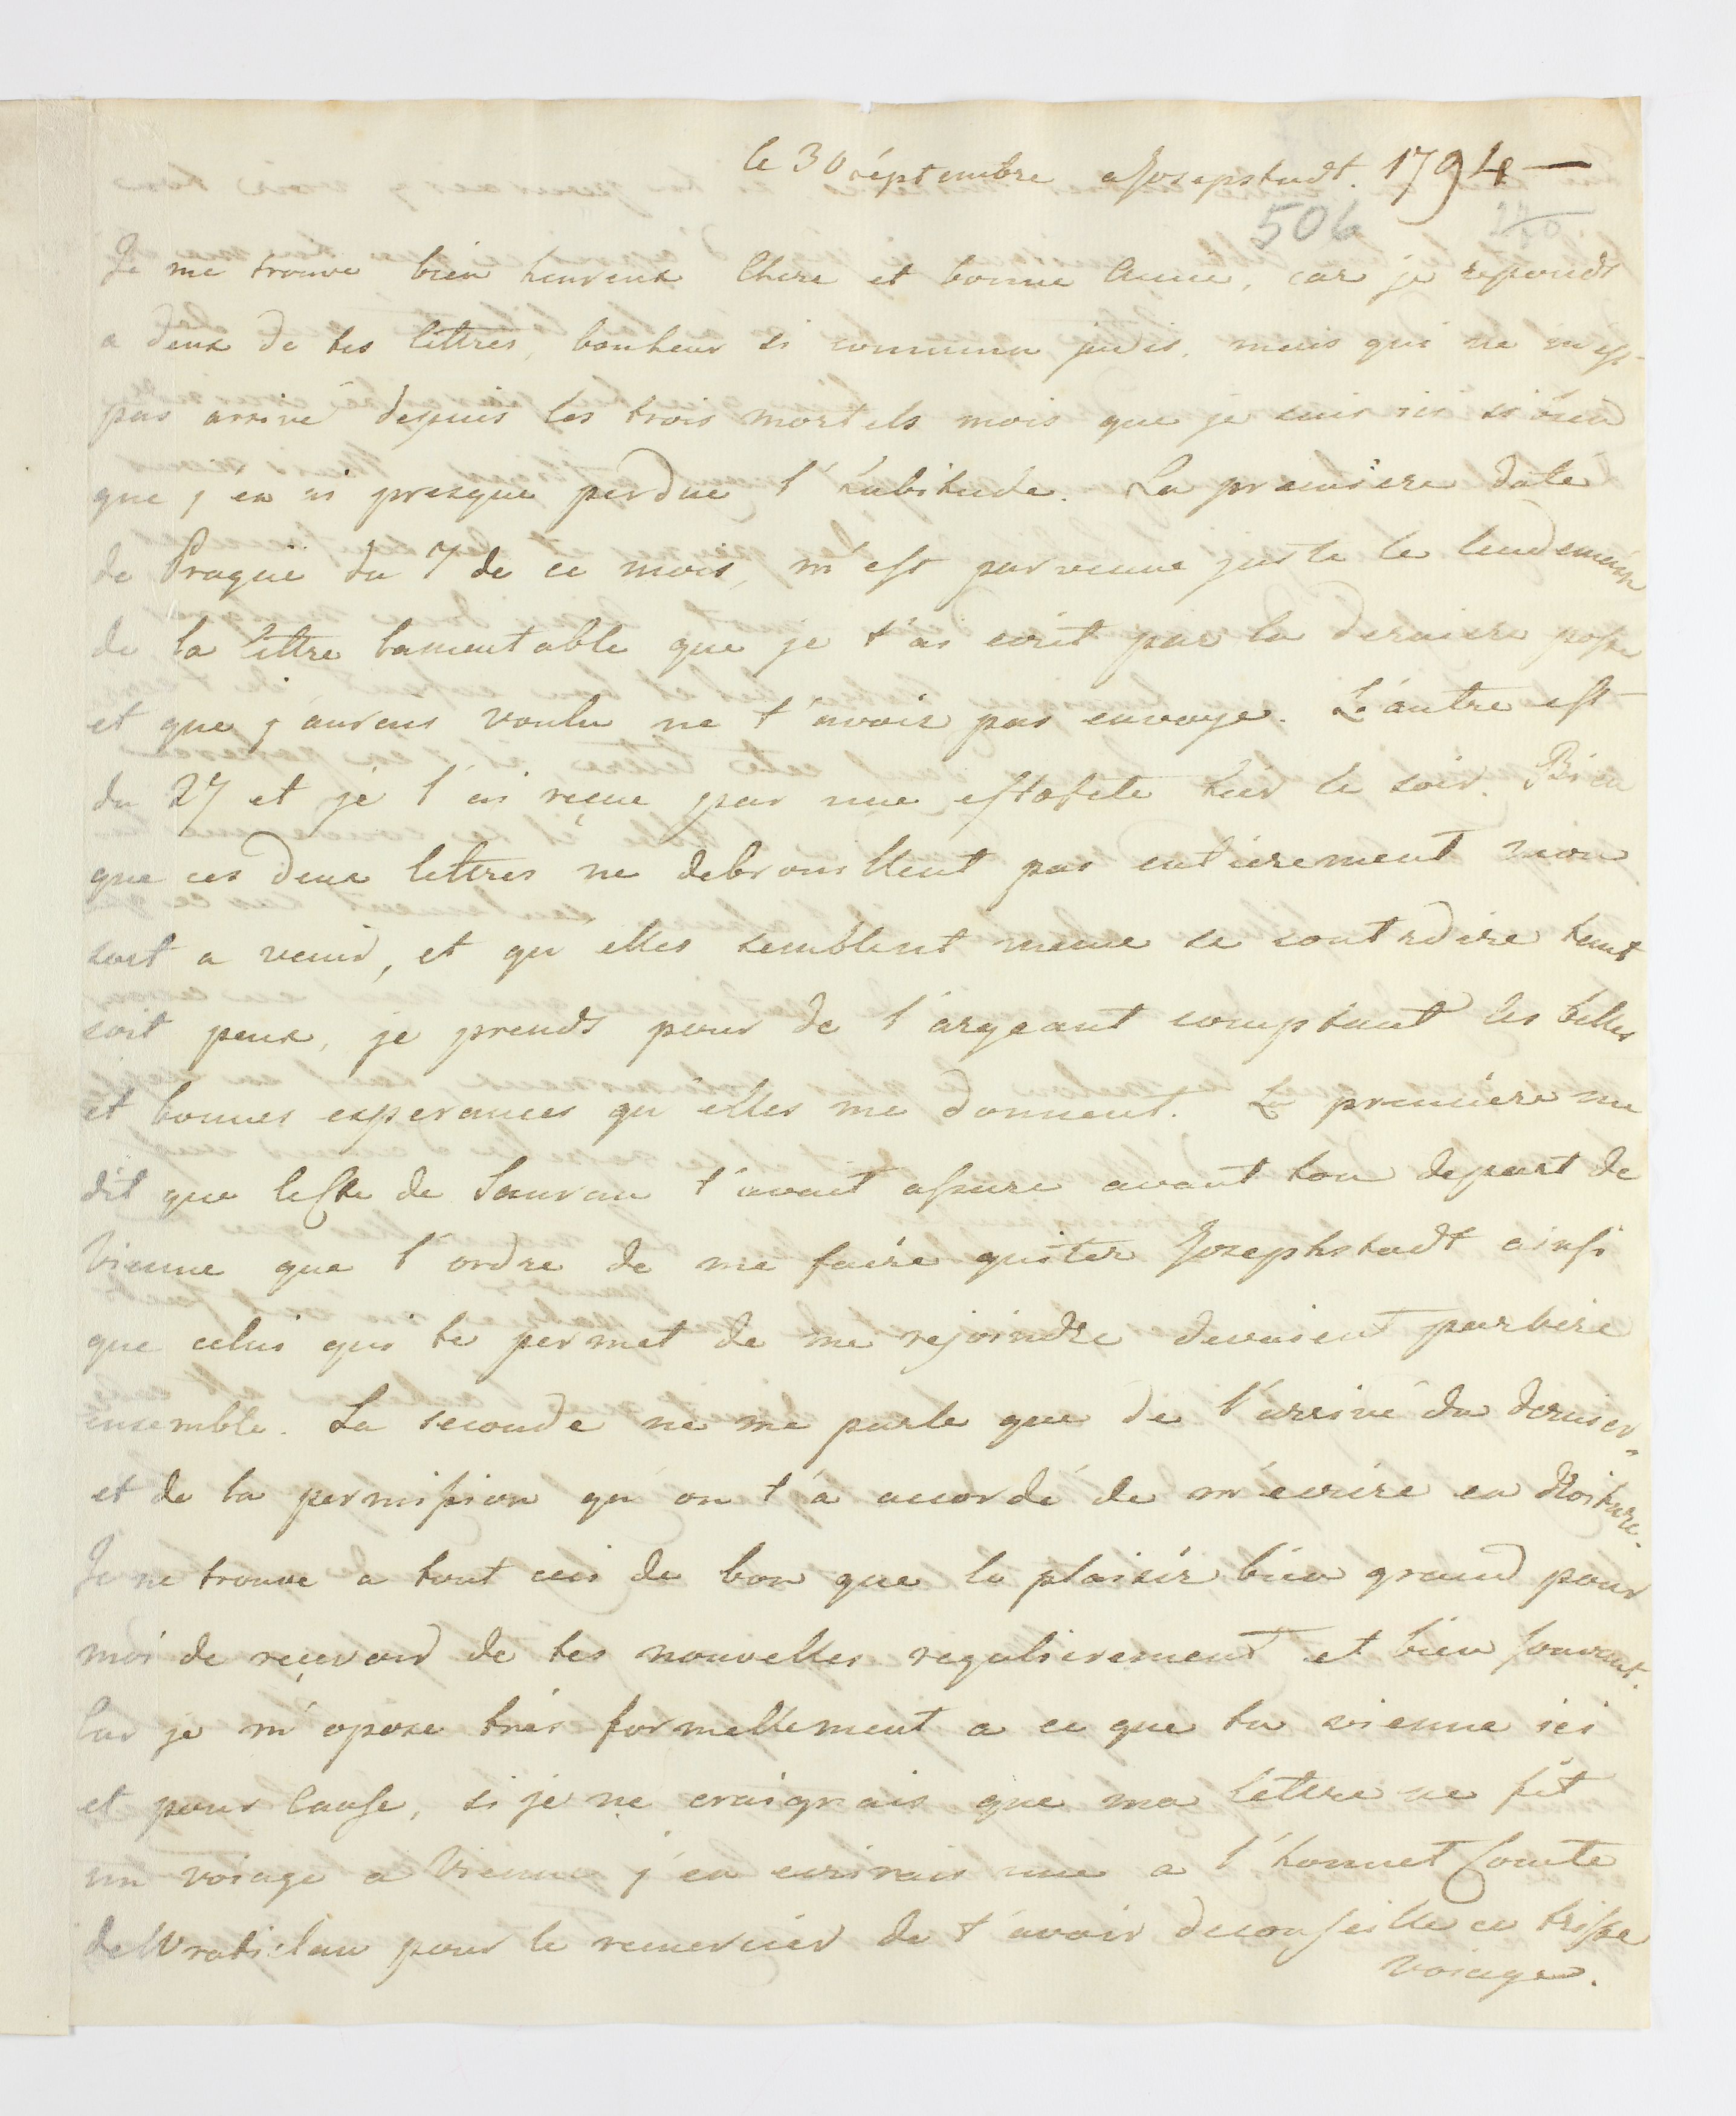 le 30 séptembre a Josepstadt. 1794 —
506 240.
Je me trouve bien heureux Chere et bonne Amie, car je reponds
a deux de tes lettres, bonheur si commun jadis, mais qui ne m'est
pas arrivé depuis les trois mortels mois que je suis ici si bien
que j'en ai presque perdue l'habitude. La premiere datée
de Prague du 7 de ce mois, m'est parvenue juste le lendemain
de la lettre lamentable que je t'ai ecrit par la derniere poste
et que j'aurais voulu ne t'avoir pas envoyé. L'autre est
du 27 et je l'ai reçue par une estafete hier le soir. Bien
que ces deux lettres ne debrouillent pas entierement mon
sort a venir, et qu'elles semblent meme se contrdire tant
soit peux, je prends pour de l'argeant comptant les belles
et bonnes esperances qu'elles me donnent. La premiére me
dit que le Cte de Saurau t'avait assure avant ton depart de
Vienne que l'ordre de me faire quiter Josephstadt ainsi
que celui qui te permet de me rejoindre devaient partire
ensemble. La seconde ne me parle que de l'arrivé du dernier,
et de la permission qu'on t'a accordé de m'ecrire en droiture.
Je ne trouve a tout ceci de bon que le plaisir bien grand pour
moi de reçevoir de tes nouvelles regulierement et bien souvent.
Car je m'opose trés formellement a ce que tu vienne ici
et pour Cause, si je ne craignais que ma lettre ne fit
un voiage a Vienne j'en ecrirais une a l'honnet Comte
de Wratislau pour le remercier de t'avoir deconseille ce triste
voiage.